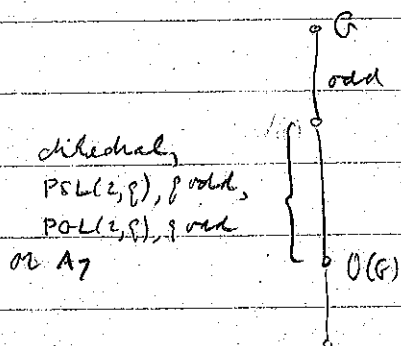 G
odd
dihedral,
PSL(2,q), q odd,
PGL(2,q), q odd
or A7
O(G)